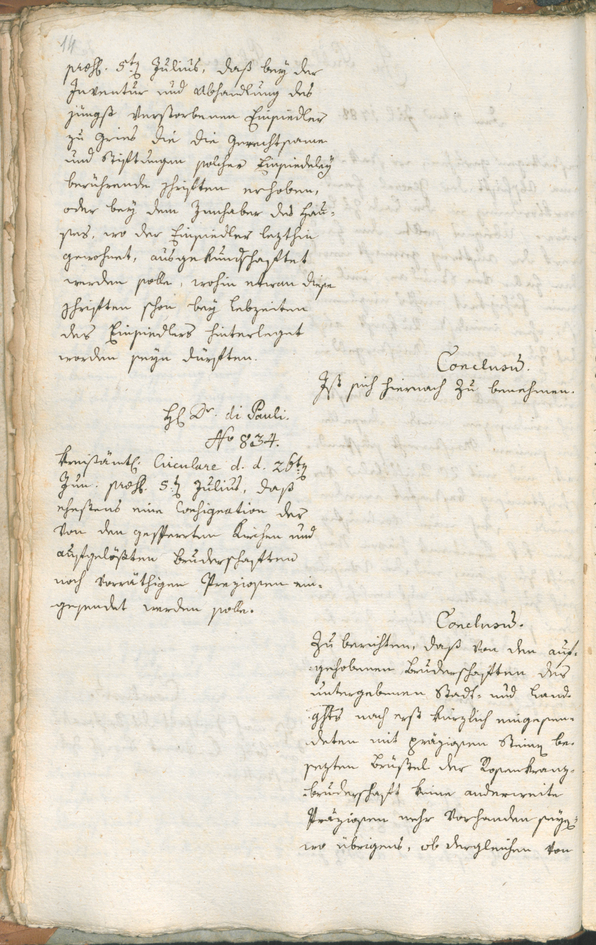 14
præs. 5ten Julius, daß bey der
Inventur und Abhandlung des
jüngst verstorbenen Einsiedler
zu Gries die die Gerechtsame
und Stiftungen solcher Einsiedeley
berührende Schriften erhoben,
oder bey dem Innhaber des Hau-
ses, wo der Einsiedler lezthin
gewohnt, ausgekundschaftet
werden solle, wohin etwan diese
Schriften schon bey Lebzeiten
des Einsiedlers hinterleget
worden seyn dürften.
Conclusum.
Ist sich hiernach zu benehmen.
H. Dr. di Pauli.
No 834.
Kreisämtl. Circulare d. d. 26ten
Jun. præs. 5ten Julius, daß
ehestens eine Consignation der
von den gesperrten Kirchen und
aufgelößten Bruderschaften
noch vorräthigen Preziosen ein-
gesendet werden solle.
Conclusum.
Zu berichten, daß von den auf-
gehobenen Bruderschaften des
untergebenen Stadt- und Land-
ghts nach erst kürzlich eingesen-
deten mit präziosen Steinen be-
sezten Brüstel der Rosenkranz-
bruderschaft keine anderweite
Präziosen mehr vorhanden seyn,
wo übrigens, ob dergleichen von